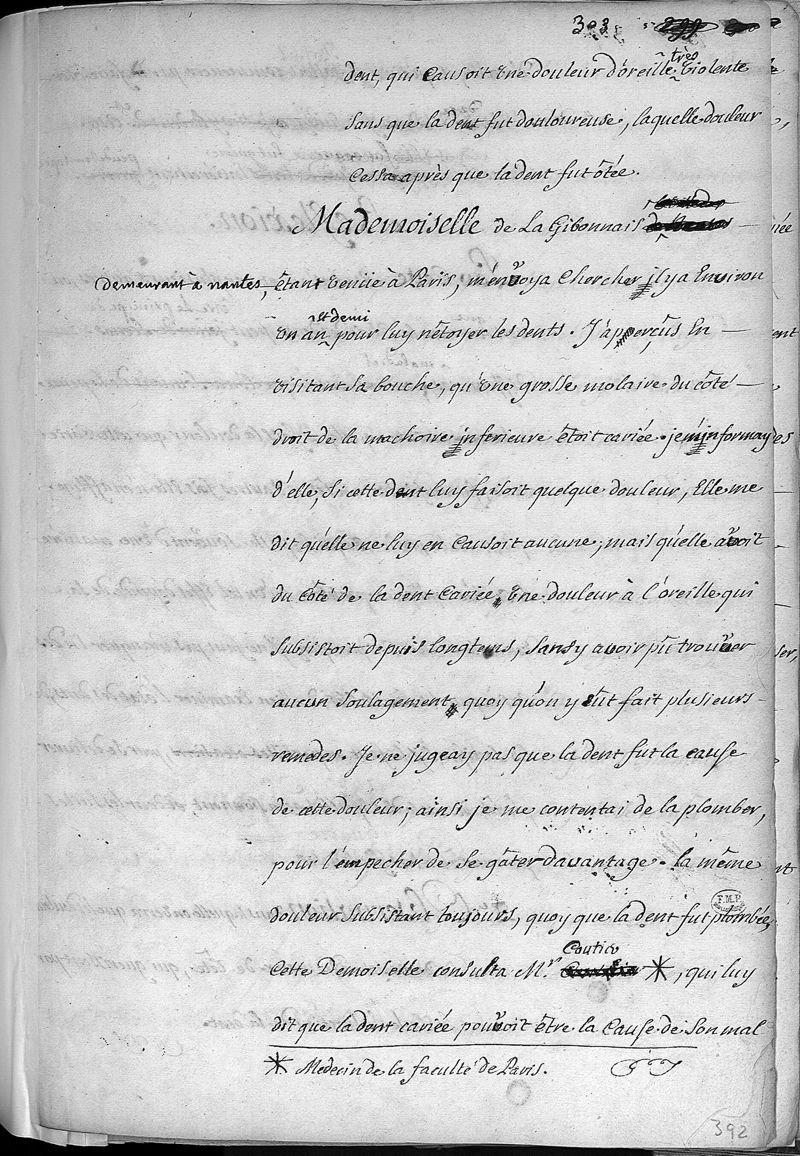 303
dent, qui causoit une douleur d'oreille très violente
sans que la dent fut douloureuse, laquelle douleur
cessa après que la dent fut ôtée.
Mademoiselle de La Gibonnais
demeurant à nantes, étant venüe à Paris, m'envoya chercher il y a environ
un an et demi pour luy nétoyer les dents. J'apperçus en
visitant sa bouche, qu'une grosse molaire du côté
droit de la machoire inferieure étoit cariée. je m'informay
d'elle, si cette dent luy faisoit quelque douleur, Elle me
dit qu'elle ne luy en causoit aucune; mais qu'elle avoit
du côté de la dent cariée, une douleur à l'oreille qui
subsistoit depuis longtems, sans y avoir pû trouver
aucun soulagement, quoy qu'on y eût fait plusieurs
remedes. Je ne jugeay pas que la dent fut la cause
de cette douleur; ainsi je me contentai de la plomber,
pour l'empecher de se gâter davantage. la même
douleur subsistant toujours, quoy que la dent fut plombée,
Cette Demoiselle consulta Mr. *, qui luy
dit que la dent cariée pouvoit être la cause de son mal
* Medecin de la faculté de Paris.
F.M.P.
392